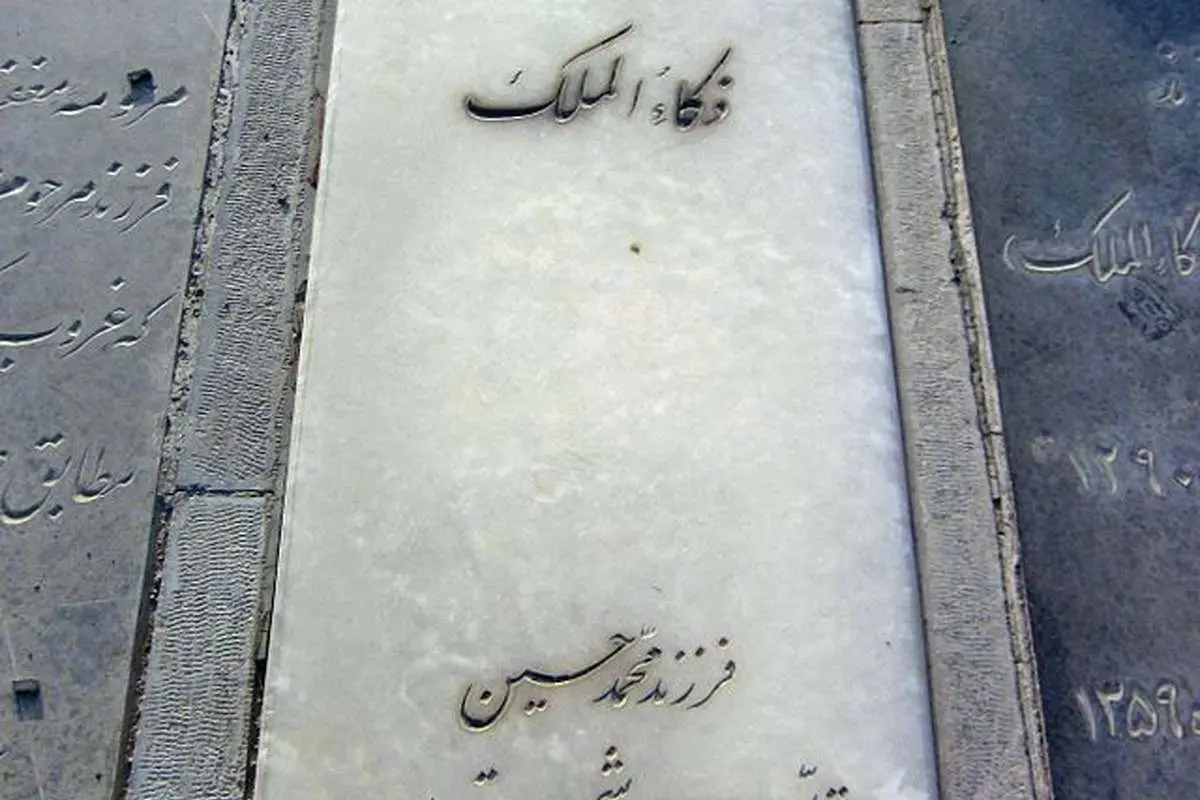 ذکاءُ الملکُ
فرزند محمّد حسین
مرحومه مغف
فرزند مرحوم
که غروب
مطابق
کاء الملک)
۱۲۹۰
۱۳۵۹